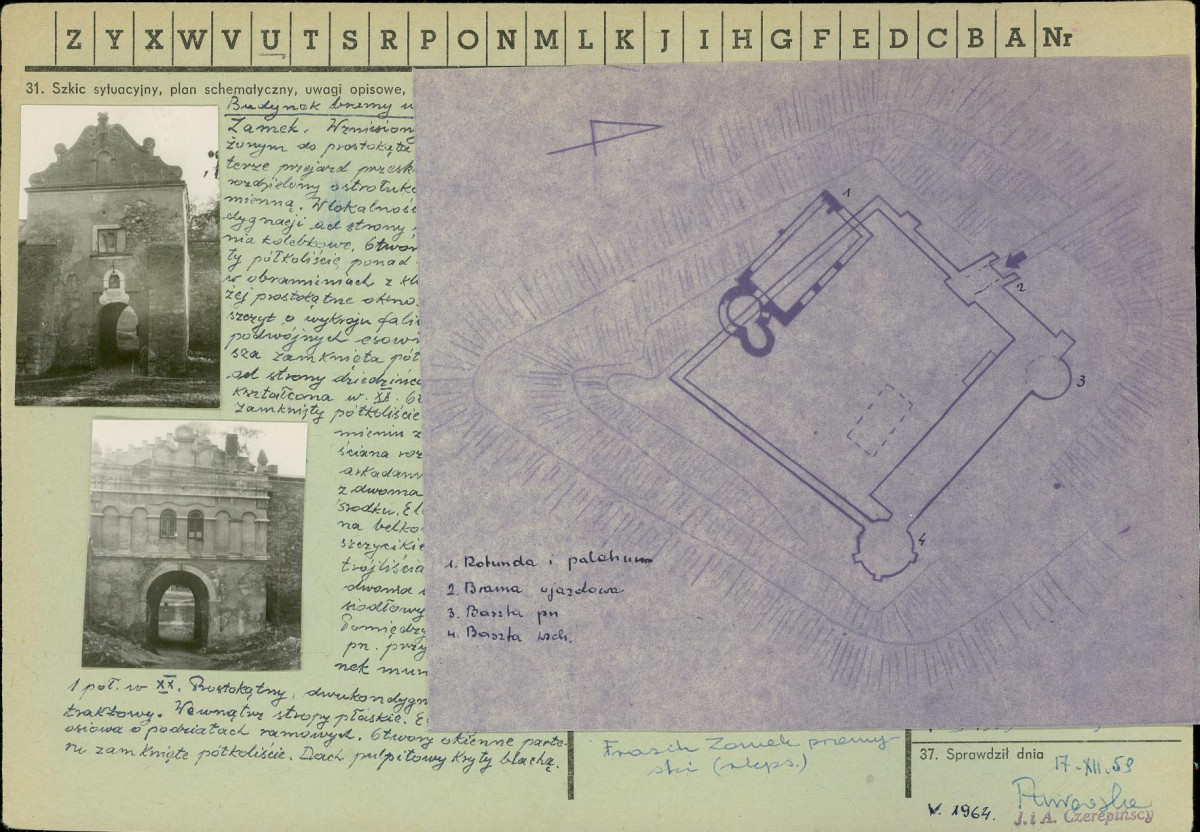 Z Y X W V U T S R P O N M L K J I H G F E D C B A Nr
31. Szkic sytuacyjny, plan schematyczny, uwagi opisowe,
Budynek bramy w
Zamek. Wzniesiony
żonym do prostokąta
terze przejazd przesk
rozdzielony ostrołuko
mienną. W lokalnośc
dygnacji od strony
nia kolebkowe. Otwor
ty półkoliście, ponad
w obramieniach z kl
żej prostokątne okno.
szczyt o wykroju fali
podwójnych esowi
sza zamknięta pół
od strony dziedzińca
kształcona w. XX. Ot
zamknięty półkoliście
mieniu z
ściana roz
arkadam
z dwoma
środku. El
na belko
szczycikie
trójliścia
dwoma
siodłowy
Pomiędzy
pn. przy
nek mur
1 poł. w XX. Prostokątny, dwukondygn
traktowy. Wewnątrz stropy płaskie. E
osiowa o podziałach ramowych. Otwory okienne parte-
ru zamknięte półkoliście. Dach pulpitowy kryty blachą.
1
2
3
4
1. Rotunda i palatium
2. Brama wjazdowa
3. Baszta pn
4. Baszta wsch.
Frasik Zamek przemy-
ski (rkps.)
37. Sprawdził dnia
17-XII.59
V. 1964.
J. i A. Czerepińscy